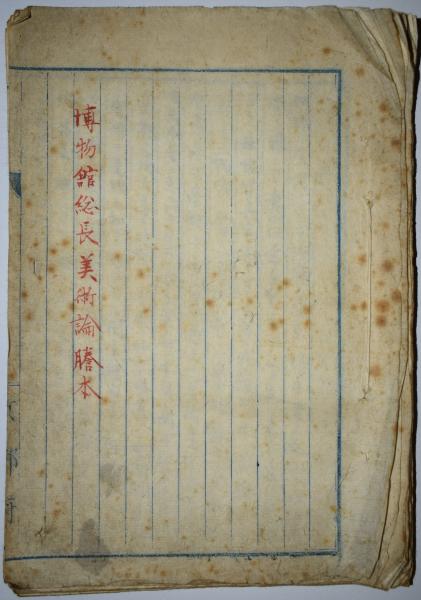 博物館総長美術論謄本